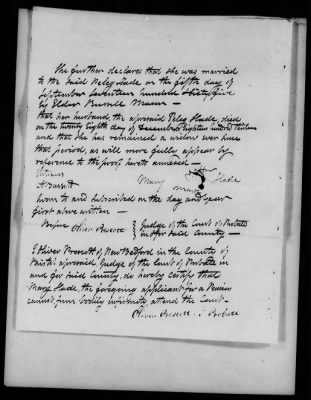 She further declares that she was married
to the said Peleg Slade on the fifth day of
September Seventeen hundred & sixty five
by Elder Russell Mason —
that her husband, the aforesaid Peleg Slade, died
on the twenty Eighth day of December Eighteen hundred thirteen
and that she has remained a widow ever since
that period, as will more fully appear by
reference to the proof hereto annexed —
Witness
A Bassett Mary Slade
mark
Sworn to and subscribed on the day and year
first above written —
Before Oliver Prescott } Judge of the Court of Probate
in & for said County —
I Oliver Prescott of New Bedford in the County of
Bristol aforesaid Judge of the Court of Probate in
and for said County, do hereby certify that
Mary Slade, the foregoing applicant for a Pension
cannot from bodily infirmity attend the Court —
Oliver Prescott, J. Probate